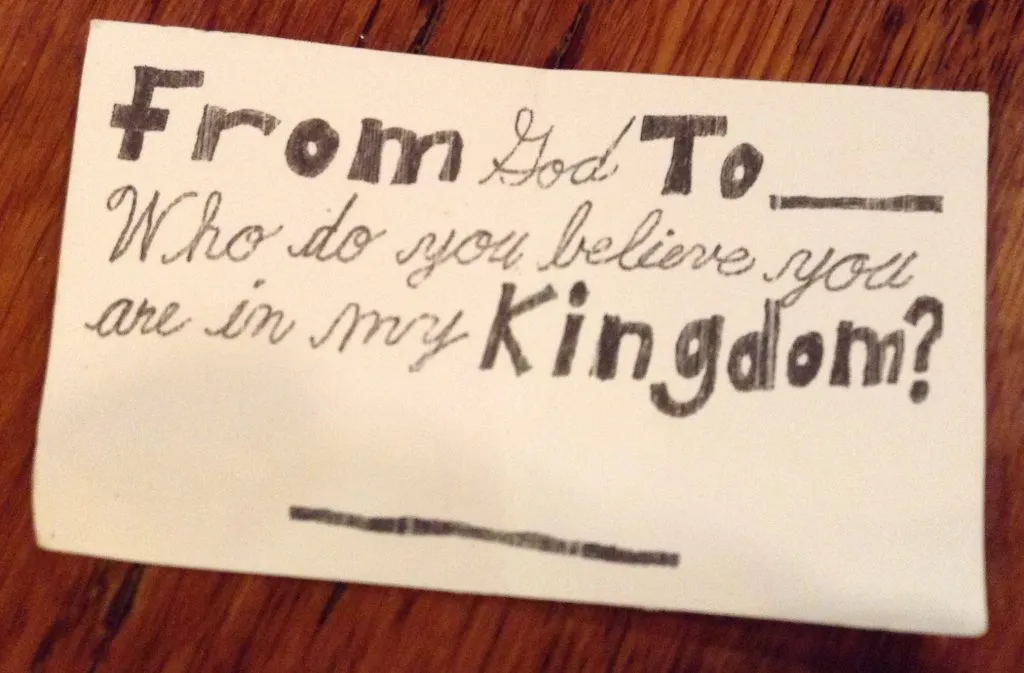 From God To ___
Who do you believe you
are in my Kingdom?
___